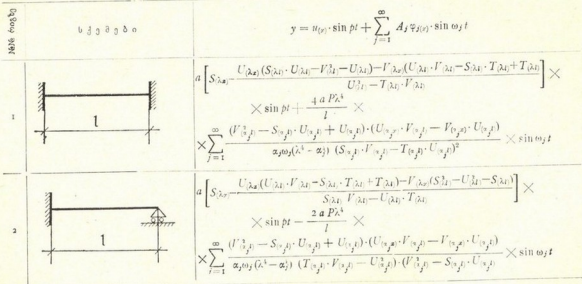 №№ რიგზე
სქემები
y = u₍ₓ₎ · sin pt + ∑_{j=1}^{∞} A_j φ_{j(x)} · sin ω_j t
1
l
a [ S_{(λx)} − \frac{U_{(λx)} (S_{(λl)} · U_{(λl)} − V²_{(λl)} − U_{(λl)}) − V_{(λx)} (U_{(λl)} · V_{(λl)} − S_{(λl)} · T_{(λl)} + T_{(λl)})}{U²_{(λl)} − T_{(λl)} · V_{(λl)}} ] ×
× sin pt + \frac{4 a Pλ⁴}{l} ×
× ∑_{j=1}^{∞} \frac{(V²_{(α_j l)} − S_{(α_j l)} · U_{(α_j l)} + U_{(α_j l)}) · (U_{(α_j x)} · V_{(α_j l)} − V_{(α_j x)} · U_{(α_j l)})}{α_j ω_j (λ⁴ − α_j⁴) (S_{(α_j l)} · V_{(α_j l)} − T_{(α_j l)} · U_{(α_j l)})²} × sin ω_j t
2
l
a [ S_{(λx)} − \frac{U_{(λx)} (U_{(λl)} · V_{(λl)} − S_{(λl)} · T_{(λl)} + T_{(λl)}) − V_{(λx)} (S²_{(λl)} − U²_{(λl)} − S_{(λl)})}{S_{(λl)} V_{(λl)} − U_{(λl)} · T_{(λl)}} ] ×
× sin pt − \frac{2 a Pλ⁴}{l} ×
× ∑_{j=1}^{∞} \frac{(V²_{(α_j l)} − S_{(α_j l)} · U_{(α_j l)} + U_{(α_j l)}) · (U_{(α_j x)} · V_{(α_j l)} − V_{(α_j x)} · U_{(α_j l)})}{α_j ω_j (λ⁴ − α_j⁴) (T_{(α_j l)} · V_{(α_j l)} − U²_{(α_j l)}) · (V²_{(α_j l)} − S_{(α_j l)} · U_{(α_j l)})} × sin ω_j t